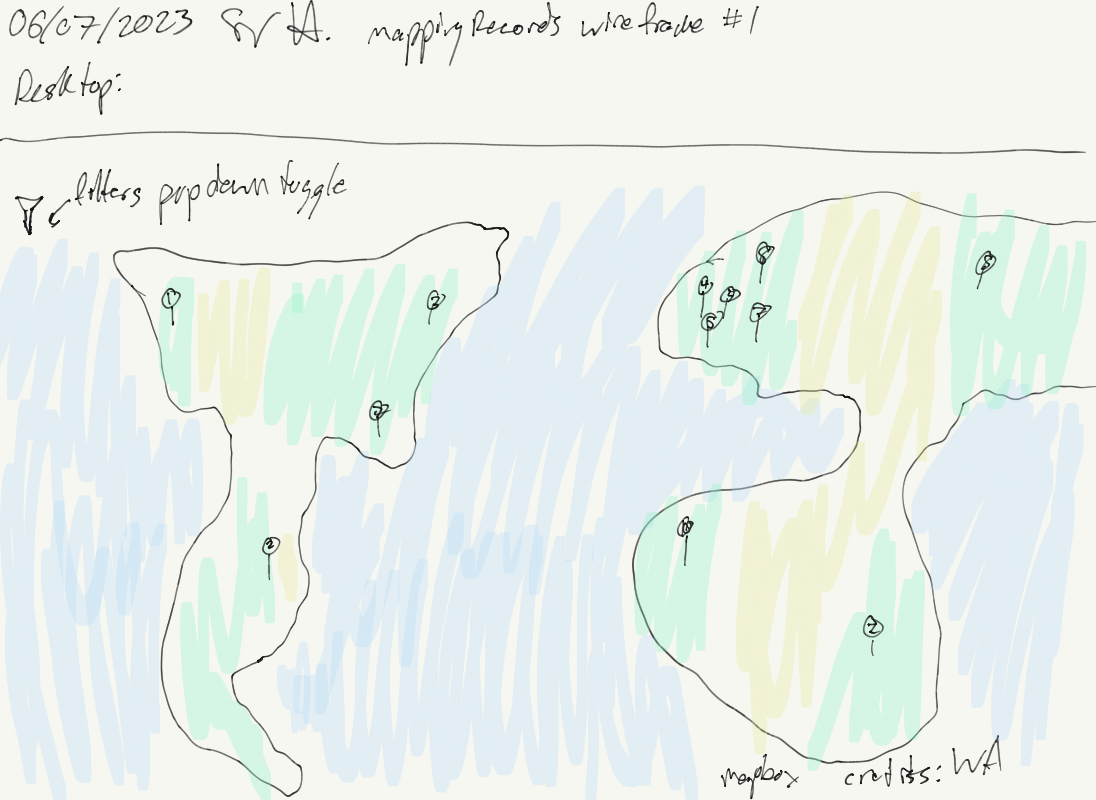 06/07/2023 mapping Records wireframe #1
Desktop:
filters popdown toggle
1
2
3
2
4
5
7
8
2
mapbox credits: WA